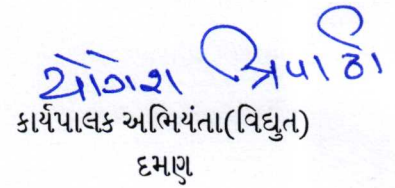 યોગેશ ત્રિપાઠી
કાર્યપાલક અભિયંતા(વિદ્યુત)
દમણ